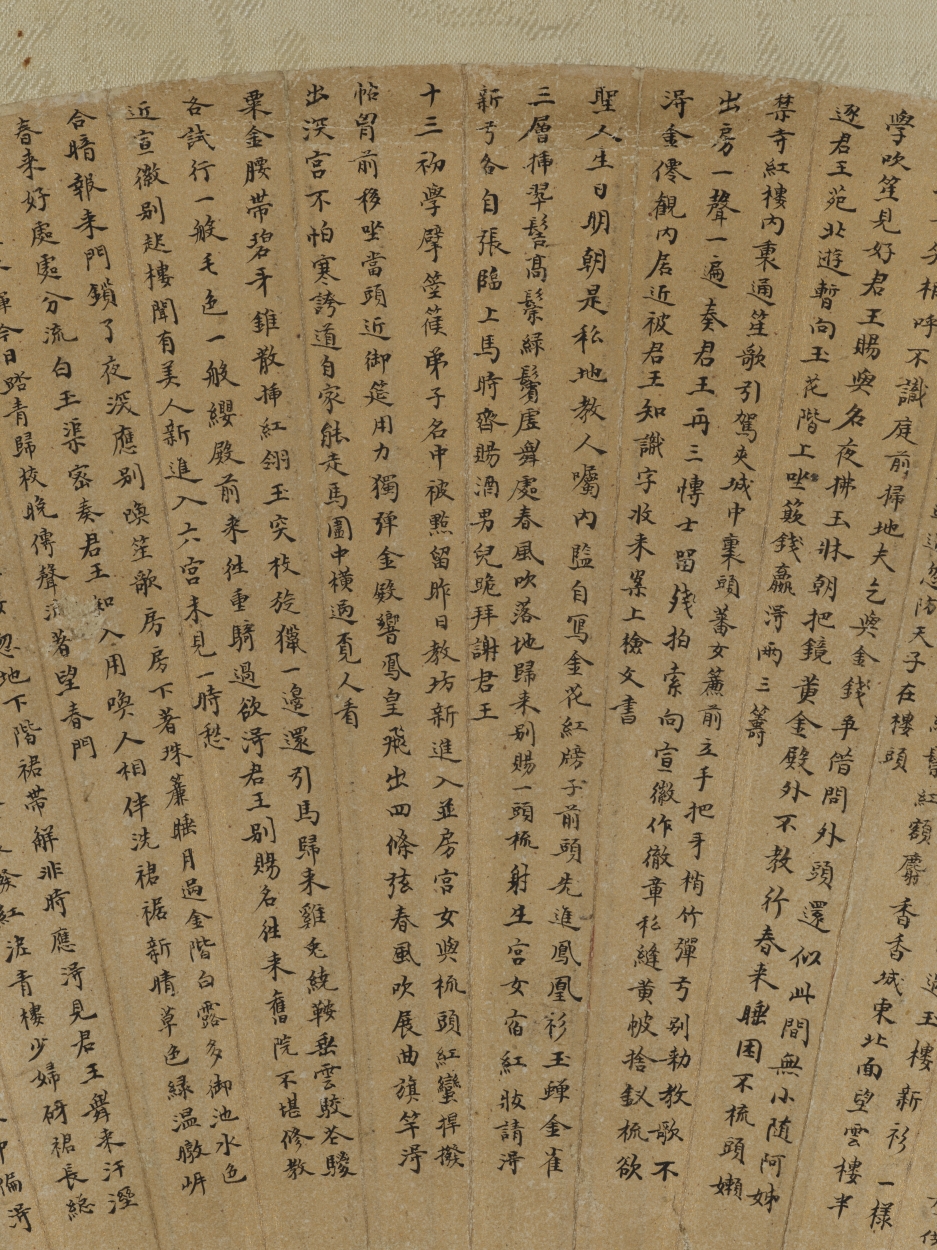 過玉樓新衫一樣
紅額麝香香城東北面望雲樓半
忽防天子在樓頭
笑相呼不識庭前掃地夫乞與金錢爭借問外頭還似此間無小隨阿姊
學吹笙見好君王賜與名夜拂玉牀朝把鏡黃金殿外不教行春來睡困不梳頭嬾
逐君王苑北遊暫向玉花階上坐簸錢贏得兩三籌
禁寺紅樓內裏通笙歌引駕夾城中裏頭蕃女簾前立手把牙梢竹彈弓別勅教歌不
出房一聲一遍奏君王再三博士留殘拍索向宣徽作徹章私縫黃帔捨釵梳欲
得金僊觀內居近被君王知識字收來案上檢文書
聖人生日明朝是私地教人囑內監自寫金花紅牓子前頭先進鳳凰衫玉蟬金雀
三層插翠髻高鬆綠鬢虛舞處春風吹落地歸來別賜一頭梳射生宮女宿紅妝請得
新弓各自張臨上馬時齊賜酒男兒跪拜謝君王
十三初學擘箜篌弟子名中被點留昨日教坊新進入並房宮女與梳頭紅蠻捍撥
帖胷前移坐當頭近御筵用力獨彈金殿響鳳皇飛出四條弦春風吹展曲旗竿得
出深宮不怕寒誇道自家能走馬園中橫過覓人看
粟金腰帶碧牙錐散插紅翎玉突枝旋獵一邊還引馬歸來雞兔繞鞍垂雲駮花驄
各試行一般毛色一般纓殿前來往重騎過欲得君王別賜名往來舊院不堪修教
近宣徽別起樓聞有美人新進入六宮未見一時愁
合暗報來門鎖了夜深應別喚笙歌房房下著珠簾睡月過金階白露多御池水色
春來好處處分流白玉渠密奏君王知入用喚人相伴洗裙裾新晴草色綠溫暾岍
今日踏青歸校晚傳聲留著望春門
忽地下階裙帶解非時應得見君王舞來汗溼
紅泥青樓少婦砑裙長總
偏得